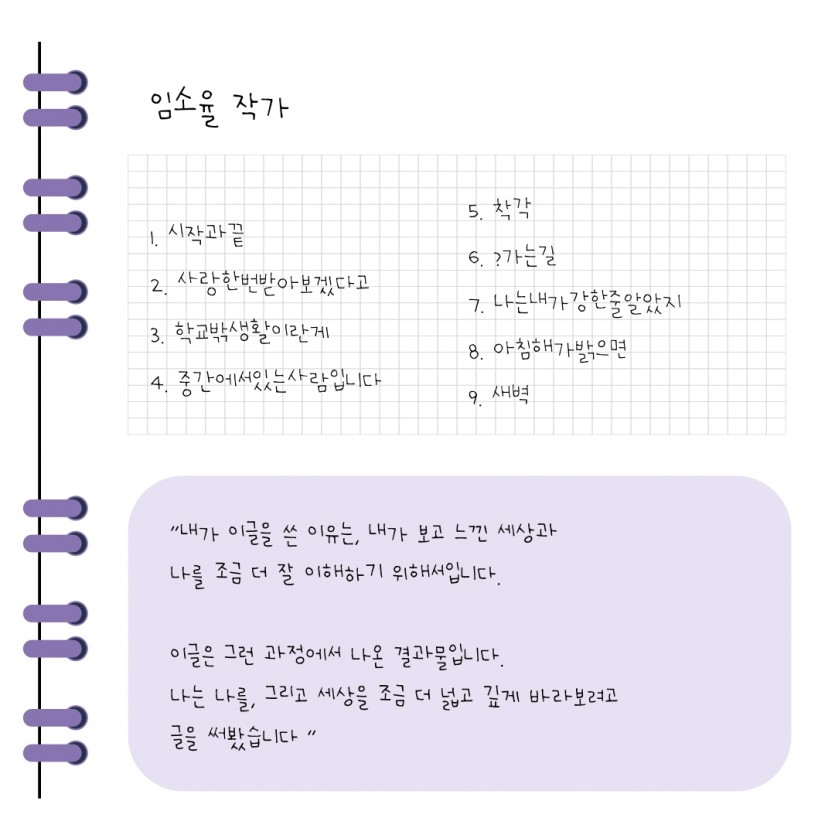 임소율 작가
1. 시작과끝
2. 사랑한번받아보겠다고
3. 학교밖생활이란게
4. 중간에서있는사람입니다
5. 착각
6. ?가는길
7. 나는내가강한줄알았지
8. 아침해가밝으면
9. 새벽
"내가 이글을 쓴 이유는, 내가 보고 느낀 세상과
나를 조금 더 잘 이해하기 위해서입니다.
이글은 그런 과정에서 나온 결과물입니다.
나는 나를, 그리고 세상을 조금 더 넓고 깊게 바라보려고
글을 써봤습니다 "